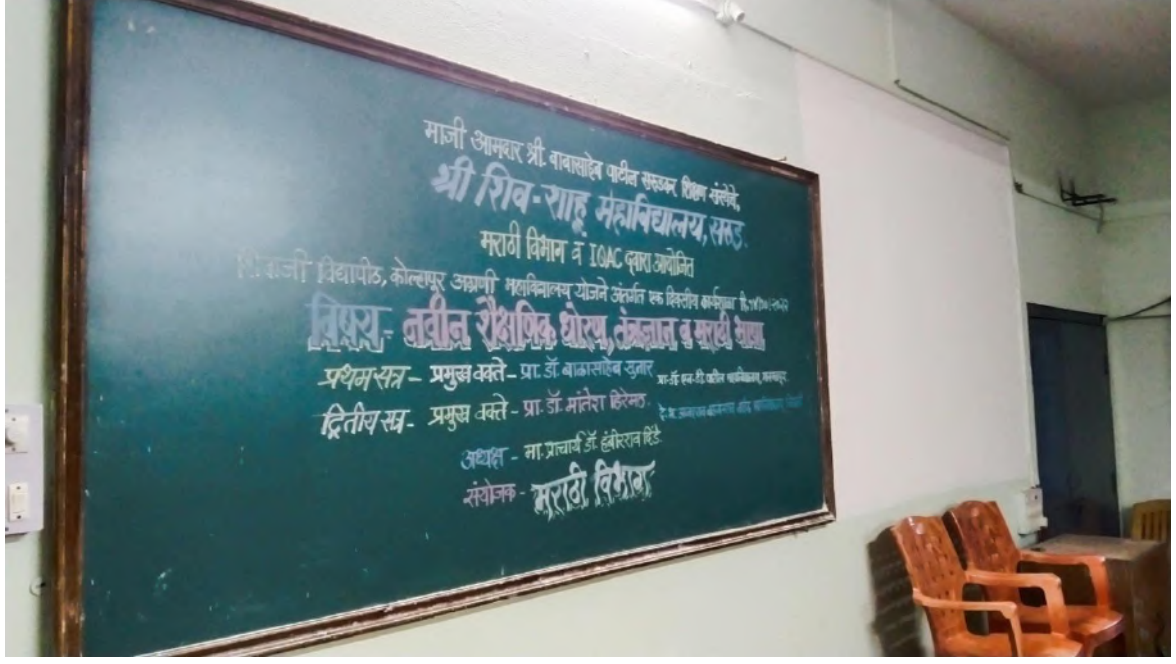 माजी आमदार श्री. बाबासाहेब पाटील सरुडकर शिक्षण संस्थेचे,
श्री शिव-शाहू महाविद्यालय, सरुड.
मराठी विभाग व IQAC द्वारा आयोजित
शिवाजी विद्यापीठ, कोल्हापूर अग्रणी महाविद्यालय योजने अंतर्गत एक दिवसीय कार्यशाळा दि.
विषय- नवीन शैक्षणिक धोरण, तंत्रज्ञान व मराठी भाषा
प्रथम सत्र - प्रमुख वक्ते - प्रा. डॉ. बाळासाहेब सुतार प्रा. डॉ. एन. डी. पाटील महाविद्यालय, मलकापूर.
द्वितीय सत्र - प्रमुख वक्ते - प्रा. डॉ. मांतेश हिरेमठ.
अध्यक्ष - मा. प्राचार्य डॉ.
संयोजक - मराठी विभाग